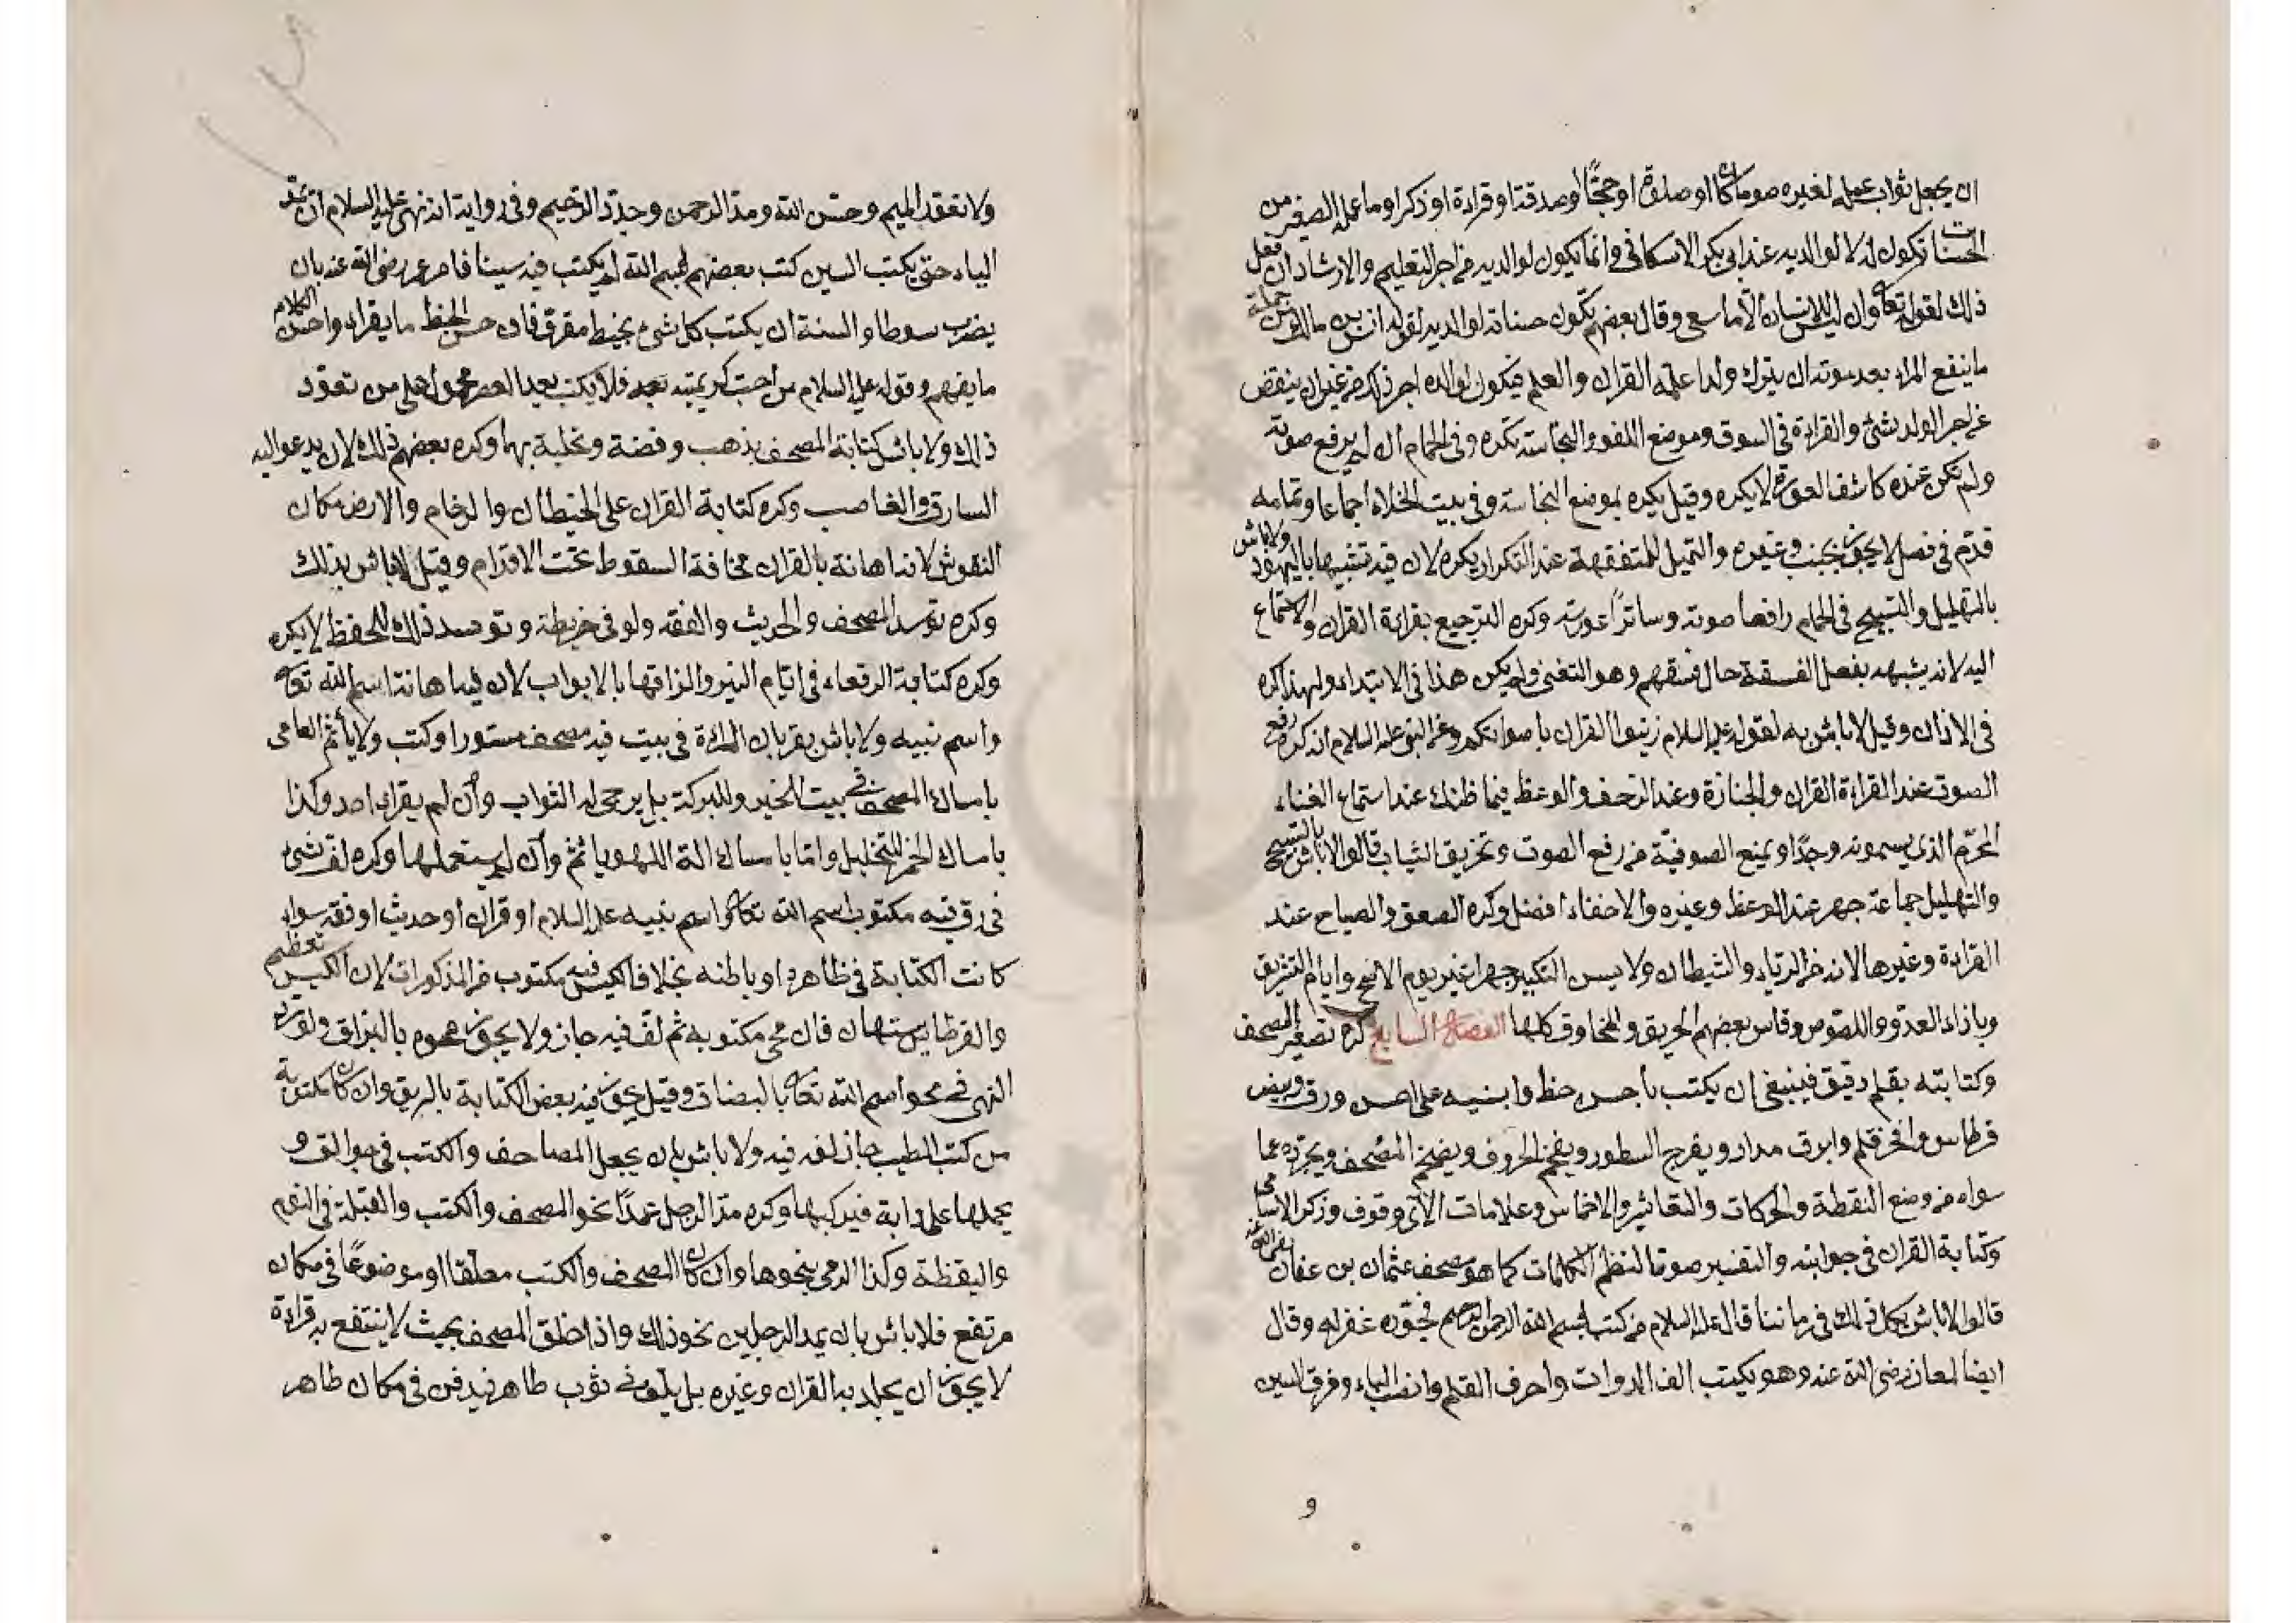 ان يجعل ثواب عمله لغيره صوما كان او صلوة او حجًّا او صدقة او قراءة او ذكرا وما عمله الصغير من
الحسنات تكون له لا لوالديه عند ابى بكر الاسكافى وانما يكون لوالديه من اجر التعليم والارشاد ان فعل
ذلك لقوله تعا وان ليس للانسان الا ما سعى وقال بعضهم تكون حسناته لوالديه لقول انس بن مالك من جملة
ما ينفع المرء بعد موته ان يترك ولدا علمه القران والعلم فيكون لوالده اجر ذلك من غير ان ينقص
من اجر الولد شئ والقراءة فى السوق وموضع اللغو والنجاسة تكره وفى الحمام ان لم يرفع صوته
ولم يكن عنده كاشف العورة لا يكره وقيل يكره بموضع النجاسة وفى بيت الخلاء اجماعا وتمامه
قدّم فى فصل لا يجوز لجنب وغيره والتميل للمتفقهة عند التكرار يكره لان فيه تشبيها باليهود ولا باس
بالتهليل والتسبيح فى الحمام رافعا صوته وساترًا عورته وكره الترجيع بقراءة القران والاستماع
اليه لانه يشبه بفعل الفسقة حال فسقهم وهو التغنى ولم يكن هذا فى الابتداء ولهذا كره
فى الاذان وقيل لا باس به لقوله عليه السلام زينوا القران باصواتكم وعن النبى عليه السلام انه كره رفع
الصوت عند القراءة القران والجنازة وعند الزحف والوعظ فيما ظنك عند استماع الغناء
المحرّم الذى يسمونه وجدًا ويمنع الصوفية من رفع الصوت وتخزيق الثياب قالوا لا باس بالتسبيح
والتهليل جماعة جهر عند الوعظ وغيره والاخفاء افضل وكره الصعق والصياح عند
القراءة وغيرها لانه من الرياء والشيطان ولا يسن التكبير جهرا غير يوم الاضحى وايام التشريق
وبازاء العدو واللصوص وقاس بعضهم الحريق والمخاوف كلها الفصل السابع كره تصغير المصحف
وكتابته بقلم دقيق فينبغى ان يكتب باحسن خط وابنيه على احسن ورق وبيض
قرطاس وافخر قلم وابرق مداد ويفرج السطور ويفخم الحروف ويضخم المصحف ويجرّده عما
سواه من وضع النقطة والحركات والتعاشير والاخماس وعلامات الآى وقوف وذكر الاسامى
وكتابة القران فى جوانبه والتفسير صونا لنظم الكلمات كما هو مصحف عثمان بن عفان
قالوا لا باس بكل ذلك فى زماننا قال عليه السلام من كتب بسم الله الرحمن الرحيم فجوّده غفر له وقال
ايضا لمعاذ رضى الله عنه وهو يكتب الف الدوات واحرف القلم وانصب الباء وفرق السين
و
ولا تعقد الميم وحسن الله ومد الرحمن وجدّد الرحيم وفى رواية انه نهى عليه السلام ان تمدّ
الباء حتى يكتب السين كتب بعضهم لبسم الله لم يكتب فيه سينا فامر عمر رضى الله عنه بان
يضرب سوطا والسنة ان يكتب كل شئ بخيط مفرق فان حسن الخط ما يقراء واحسن الكلام
ما يفهم وقوله عليه السلام من احبّ كريمتيه فلا يكتب بعد العصر محمول على من تعوّد
ذلك ولا باس بكتابة المصحف بذهب وفضة وتحلية بهما وكره بعضهم ذلك لان يدعو اليه
السارق والغاصب وكره كتابة القران على الحيطان والرخام والارض مكان
النقوش لانه اهانة بالقران مخافة السقوط تحت الاقدام وقيل لا باس بذلك
وكره توسد المصحف والحديث والفقه ولو فى خريطة وتوسد ذلك للحفظ لا يكره
وكره كتابة الرقعاء فى ايام النير والزاقها بالابواب لان فيه اهانة اسم الله تعا
واسم نبيه ولا باس بقربان المراة فى بيت فيه مصحف مستور او كتب ولا يأثم العامى
بامساك المصحف فى بيت الخير وللبركة بل يرجى له الثواب وان لم يقراء احد وكذا
بامساك الخمر للتخليل واما بامساك الة اللهو ياثم وان لم يستعملها وكره لف شئ
فى رق فيه مكتوب اسم الله تعا او اسم نبيه عليه السلام او قران او حديث او فقه سواء
كانت الكتابة فى ظاهره او باطنه بخلاف الكيس فيه مكتوب من المذكورات لان الكيس تعظيم
والقرطاس يستهان فان محى مكتوبه ثم لفّ فيه جاز ولا يجوز محوه بالبزاق ولو
النهى فى محو اسم الله تعا بالبصاق وقيل يجوز فيه بعض الكتابة بالريق وان كان مكتوبة
من كتب الطيب جاز لفه فيه ولا باس بان يجعل المصاحف والكتب فى جوالق و
يحملها على دابة فيركبها وكره مدّ الرجل عمدًا نحو المصحف والكتب والقبلة فى النوم
واليقظة وكذا الرمى بنحوها وان كان المصحف والكتب معلقا او موضوعًا فى مكان
مرتفع فلا باس بان يمد الرجلين نحو ذلك واذا خلق المصحف بحيث لا ينتفع به قراءة
لا يجوز ان يجلد به القران وغيره بل يلف فى ثوب طاهر فيدفن فى مكان طاهر